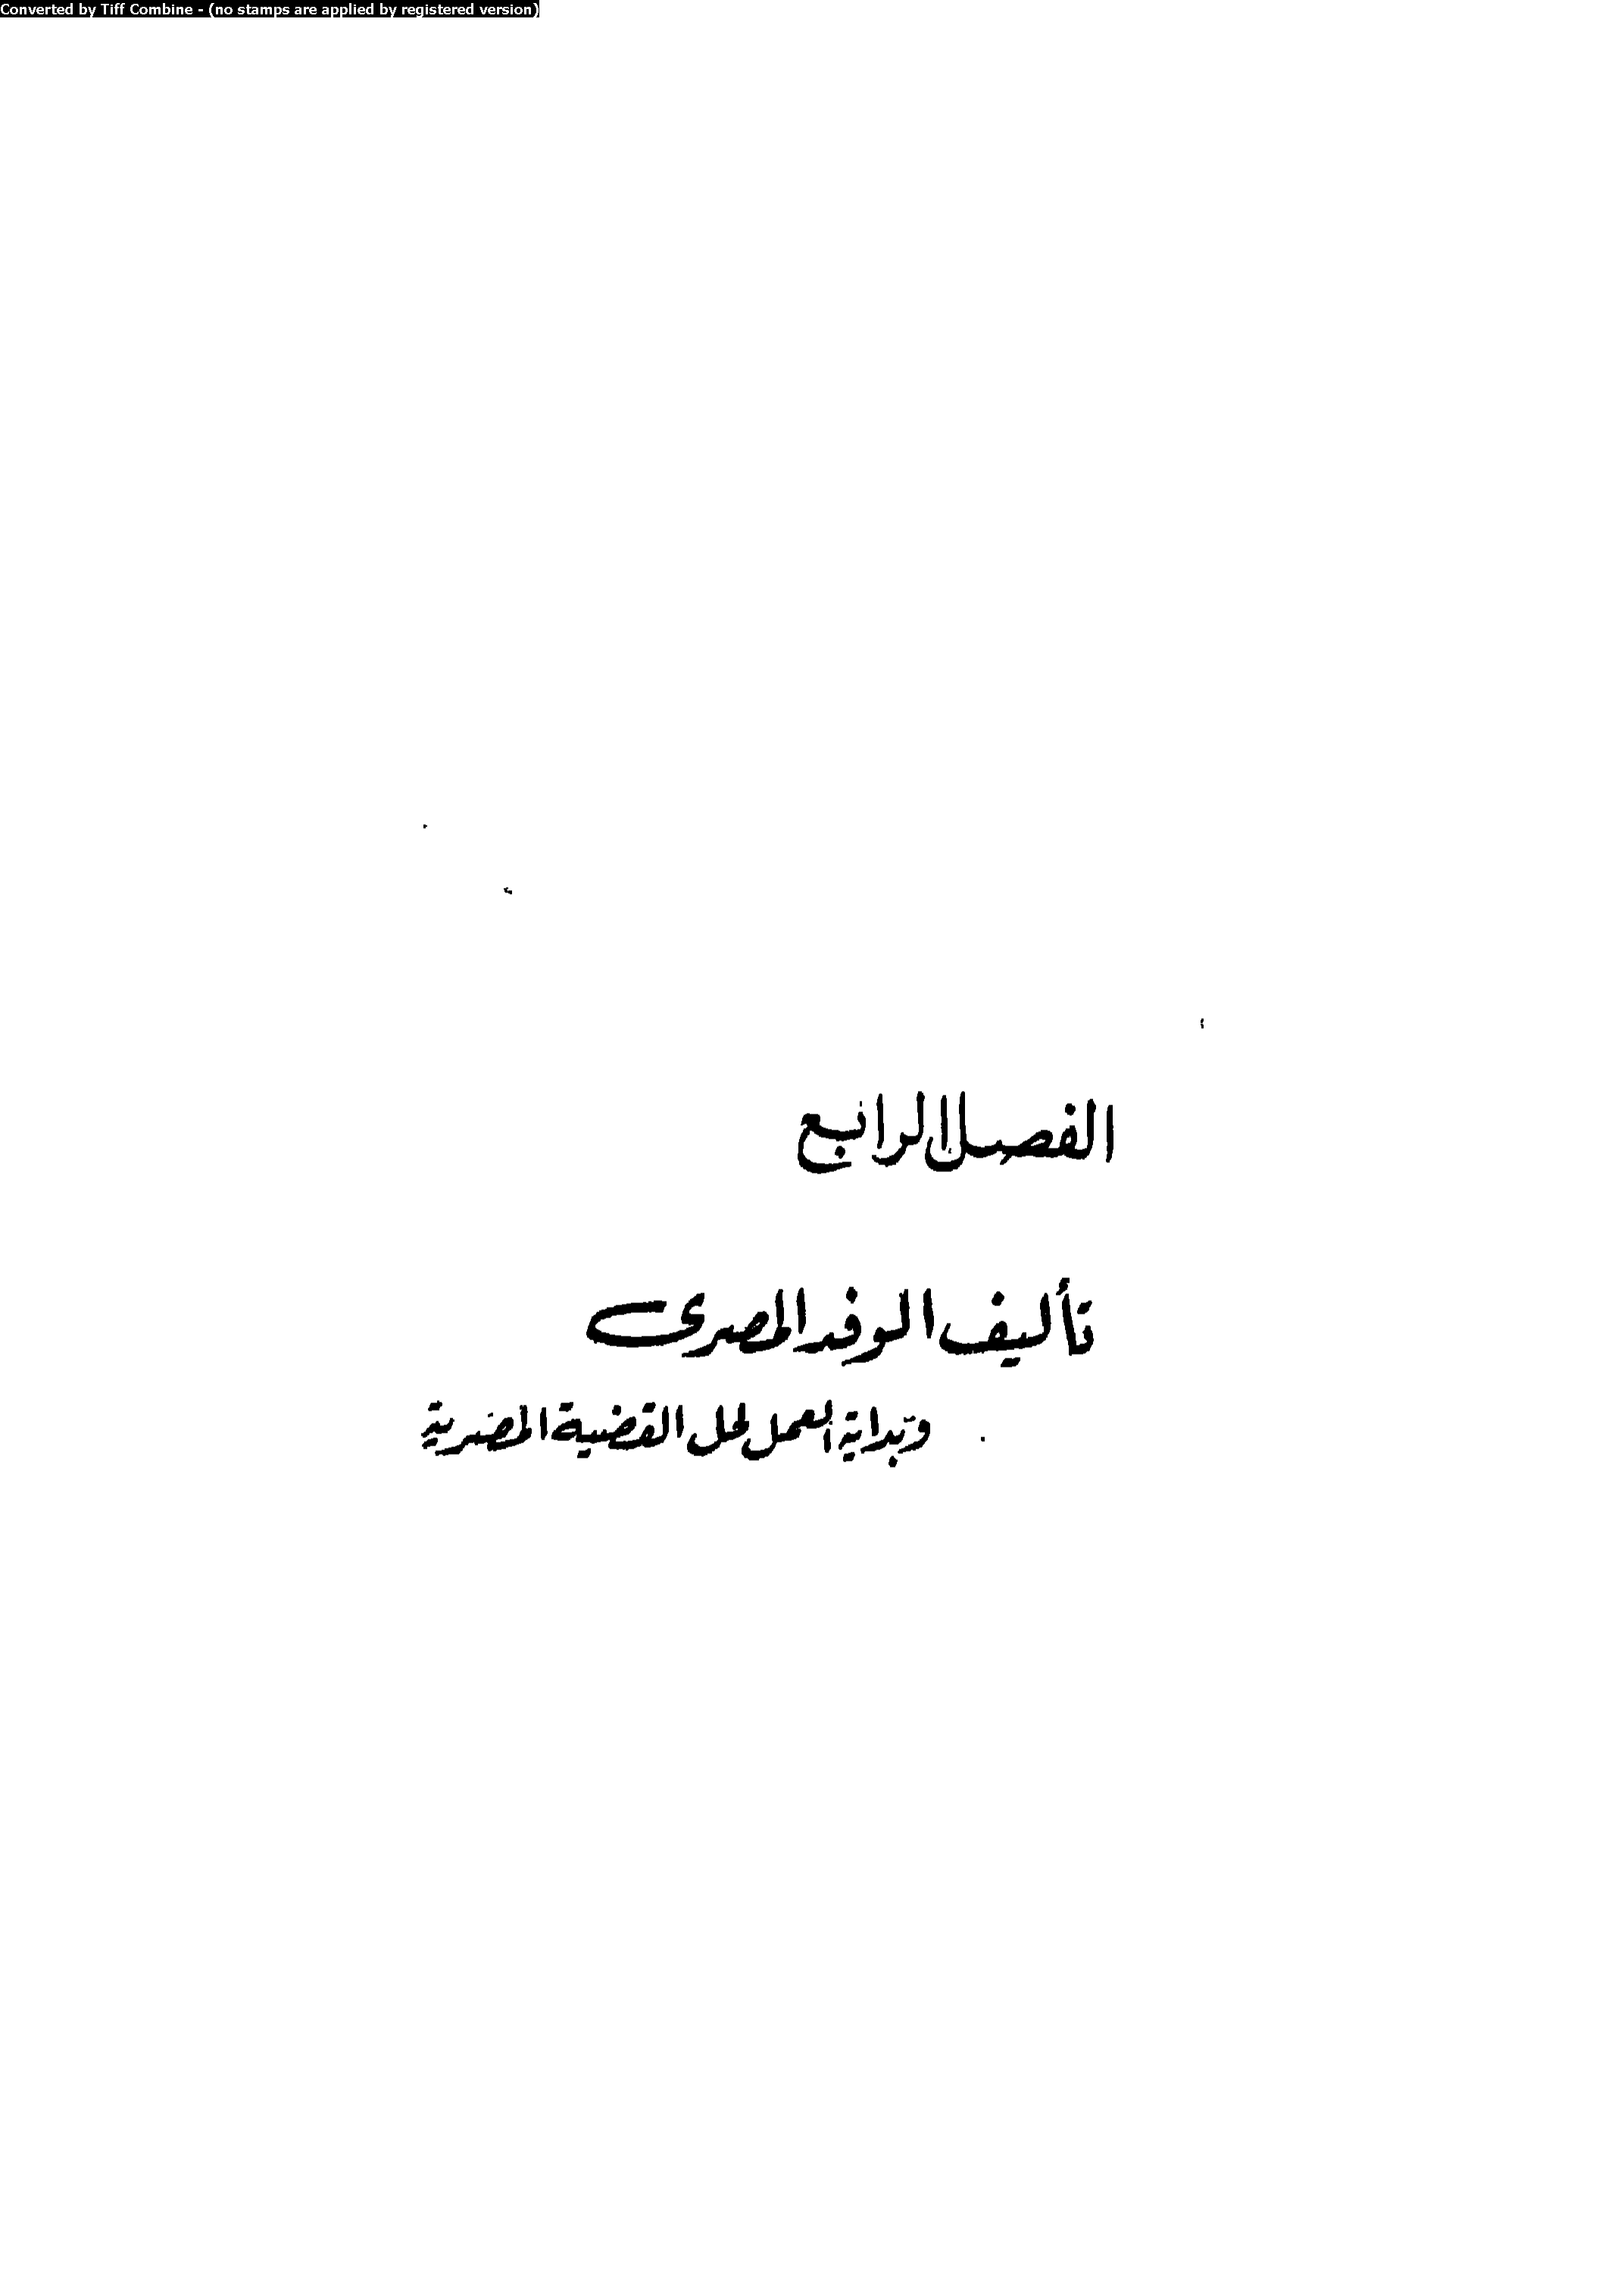 Converted by Tiff Combine - (no stamps are applied by registered version)
الفصل الرابع
تأليف الوفد المصرى
وبداية العمل لحل القضية المصرية